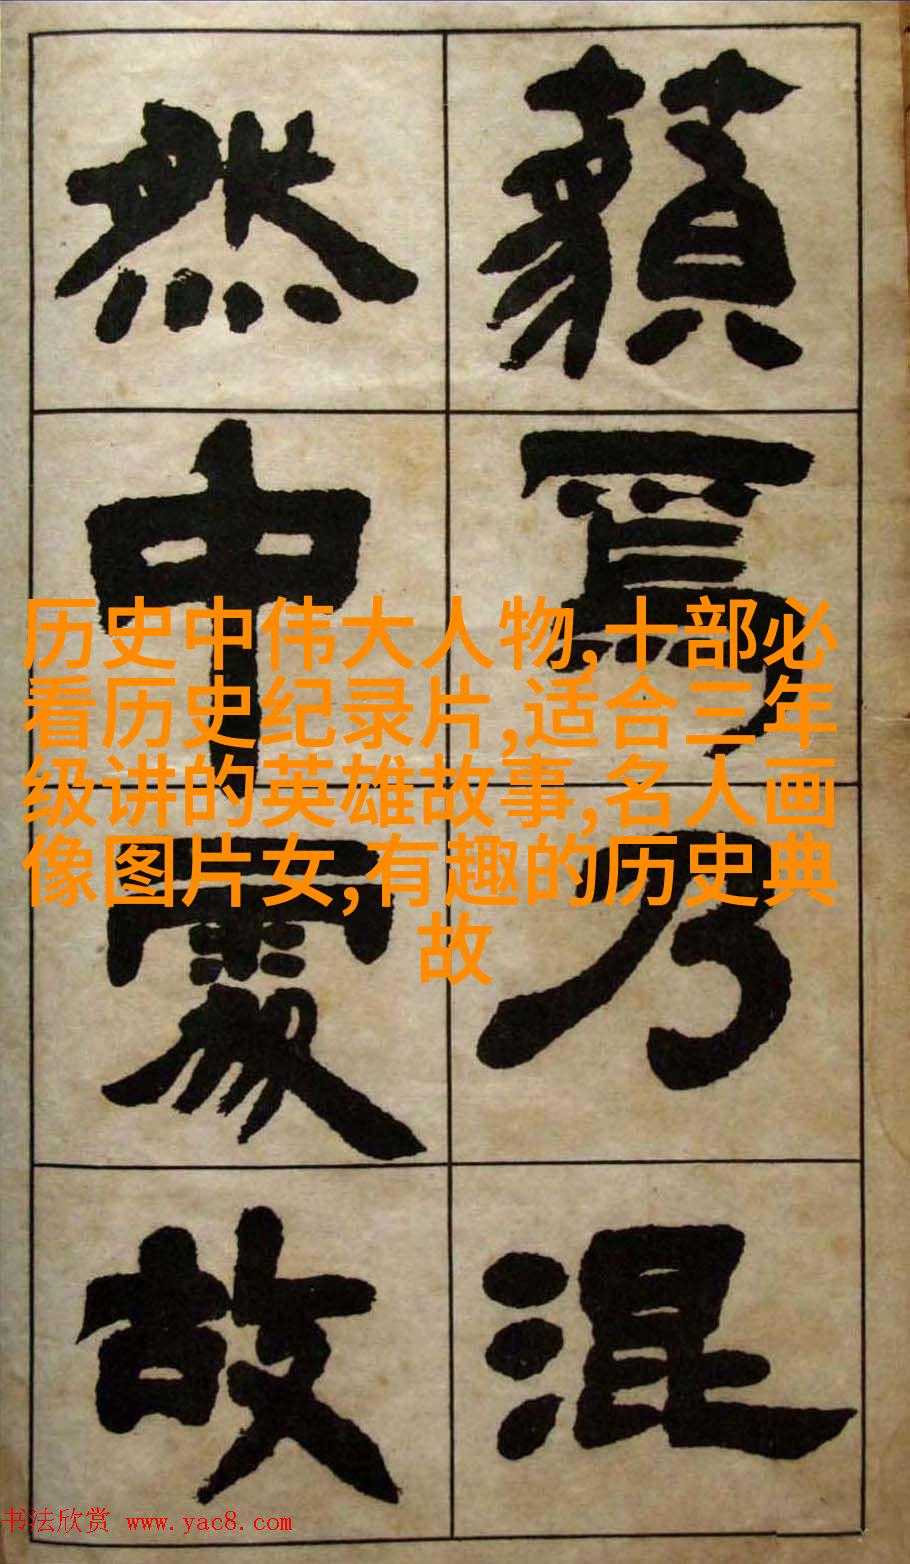 焉乃混
然中處故
历史中伟大人物,十部必
看历史纪录片,适合三年
级讲的英雄故事,名人画
像图片女,有趣的历史典
故
书法欣赏 www.yac8.com